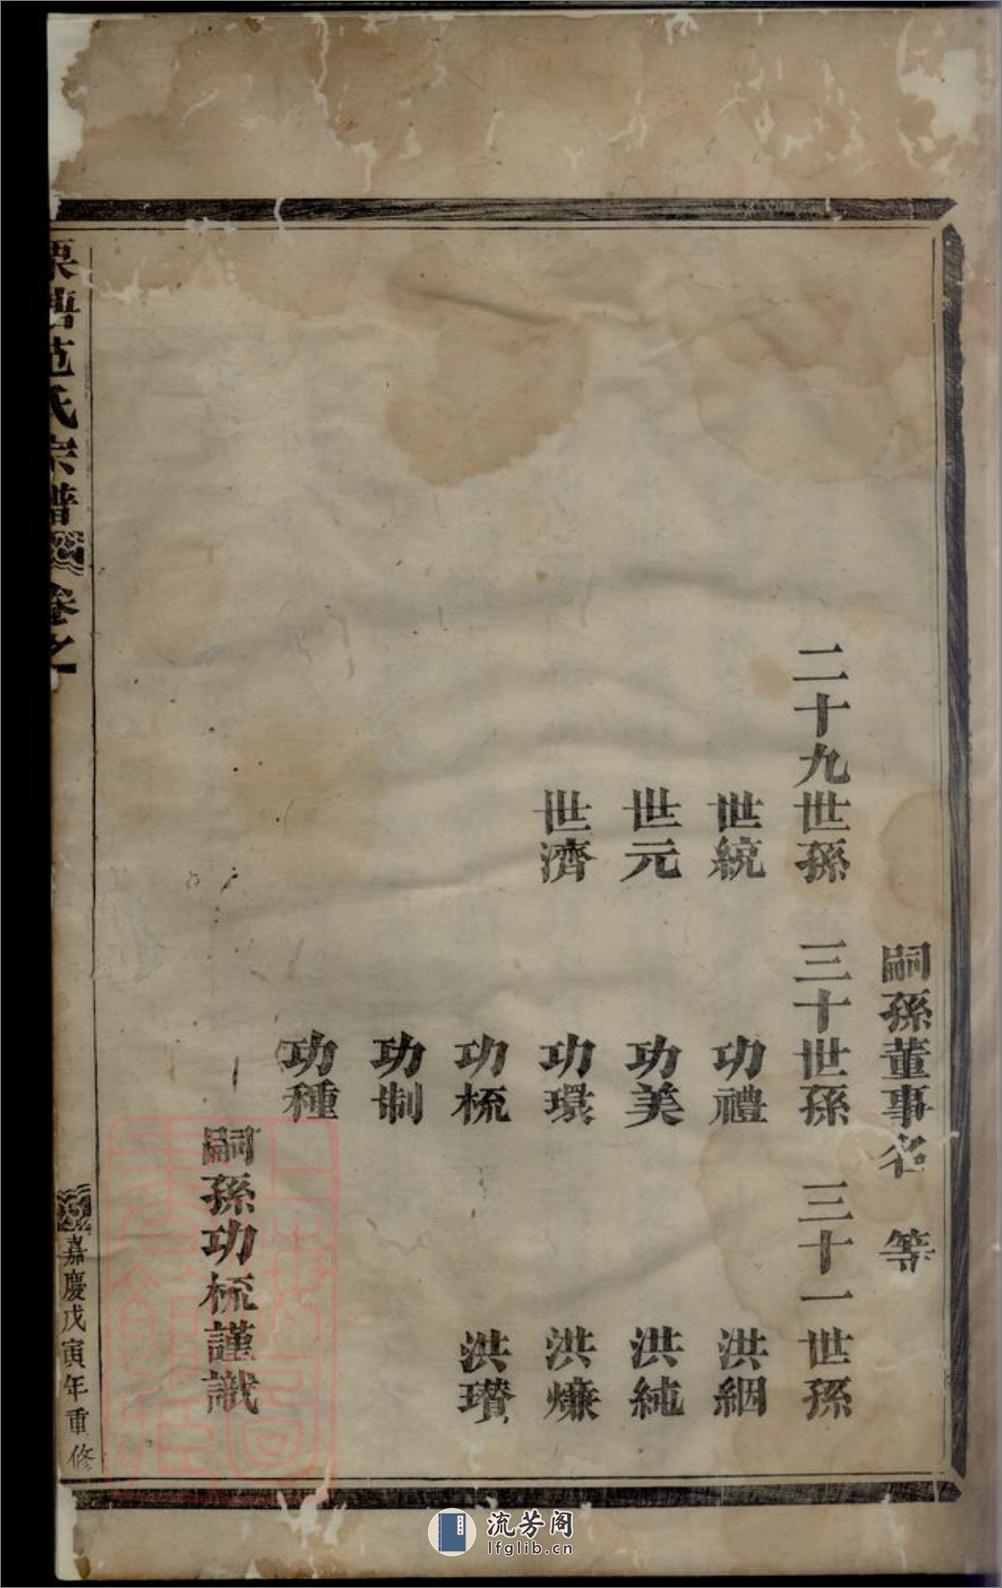 嗣孫董事名 等
二十九世孫 三十世孫 三十一世孫
世統 功禮 洪絪
世元 功美 洪純
世濟 功環 洪㷰
功梳 洪瓚
功制
功種
嗣孫功梳謹識
栗塘范氏宗譜 卷之一
嘉慶戊寅年重修
流芳阁
lfglib.cn